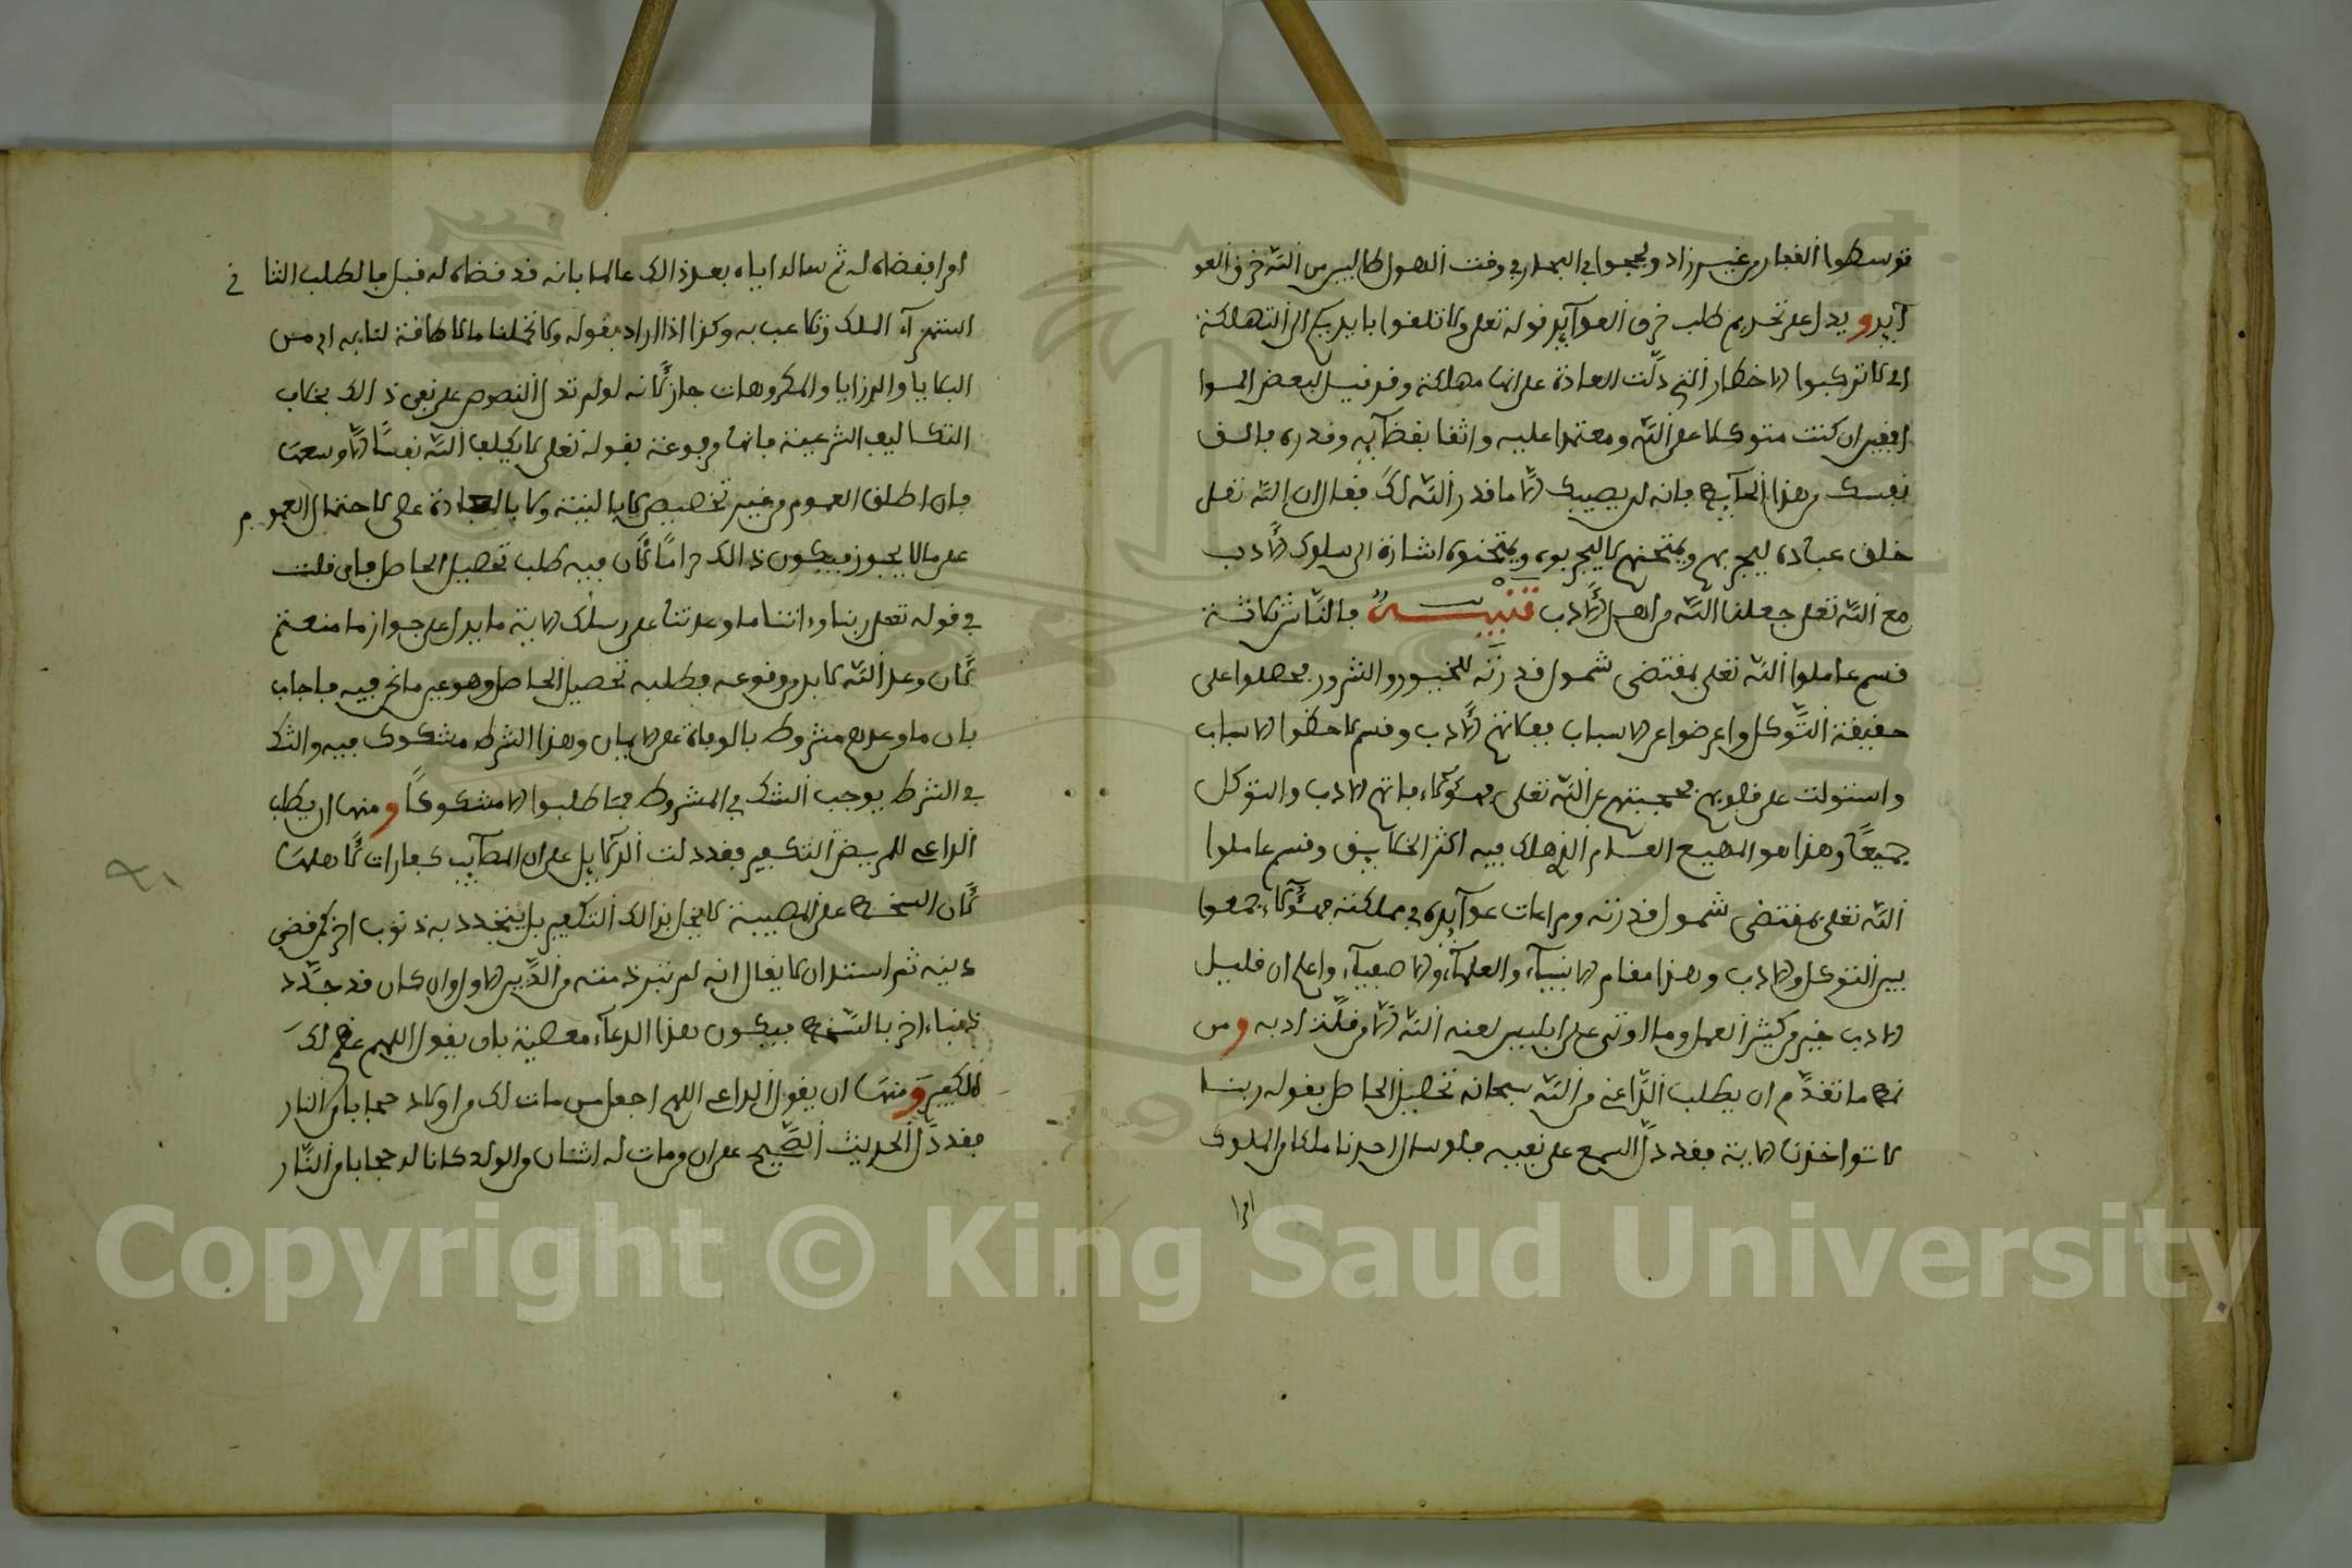 توسطوا القفار من غير زاد ولججوا في البحار في وقت الهول طالبين من الله خرق العو
آيد ويدل على تحريم طلب خرق العوآيد قوله تعلى ولا تلقوا بايديكم الى التهلكة
اي لا تركبوا الاخطار التي دلت العادة على انها مهلكة وقد قيل لبعض
ان كنت متوكلا على الله ومعتمدا عليه واثقا بقضآيه وقدره فالق
نفسك من هذا الحآيط فانه لن يصيبك الا ما قدر الله لك فقال ان الله تعلى
خلق عباده ليجربهم ويمتحنهم لا ليجربوه ويمتحنوه اشارة الى سلوك الادب
مع الله تعلى جعلنا الله من اهل الادب تنبيه فالناس ثلاثة
قسم عاملوا الله تعلى بمقتضى شمول قدرته للخيور والشرور فحصلوا على
حقيقة التوكل واعرضوا عن الاسباب ففاتهم الادب وقسم لاحظوا الاسباب
واستولت على قلوبهم فحجبتهم عن الله تعلى فهؤلاء فاتهم الادب والتوكل
جميعا وهذا هو المهيع العام الذي هلك فيه اكثر الخلايق وقسم عاملوا
الله تعلى بمقتضى شمول قدرته ومراعات عوآيده في مملكته فهؤلاء جمعوا
بين التوكل والادب وهذا مقام الانبيآء والعلمآء والاصفيآء واعلم ان قليل
الادب خير من كثير العمل وما اوتي على ابليس لعنه الله الا من قلة ادبه ومن
نمط ما تقدم ان يطلب الداعي من الله سبحانه تحصيل الحاصل بقوله ربنا
لا تواخذنا الاية فقد دل السمع على نفيه فلو سال احدنا ملكا من الملوك
امرا
امرا فقضاه له ثم ساله اياه بعد ذالك عالما بانه قد قضاه له قبل فالطلب الثاني
استهزآء الملك وتلاعب به وكذا اذا اراد بقوله ولا تحملنا ما لا طاقة لنا به اي من
البلايا والرزايا والمكروهات جاز لانه لو لم تدل النصوص على نفي ذالك بخلاف
التكاليف الشرعية فانها مرفوعة بقوله تعلى لا يكلف الله نفسا الا وسعها
فان اطلق العموم من غير تخصيص لا بالنية ولا بالعادة عصى لاحتمال العموم
على ما لا يجوز فيكون ذالك حراما لان فيه طلب تحصيل الحاصل فان قلت
في قوله تعلى ربنا وءاتنا ما وعدتنا على رسلك الاية ما يدل على جواز ما منعتم
لان وعد الله لا بد من وقوعه فطلبه تحصيل الحاصل وهو عين ما نحن فيه فاجاب
بان ما وعدهم مشروط بالوفاة على الايمان وهذا الشرط مشكوك فيه والشك
في الشرط يوجب الشك في المشروط فما طلبوا الا مشكوكا ومنها ان يطلب
الداعي للمريض التكفير فقد دلت الدلايل على ان المصآيب كفارات لاهلها
لان السخط على المصيبة لا يخل بذالك التكفير بل يتجدد به ذنوب اخر كمن قضى
دينه ثم استدان لا يقال انه لم تبر ذمته من الدين الاول وان كان قد جدد
ذنبا ءاخر بالسخط فيكون هذا الدعآء معصية بان يقول اللهم عظم لك
التكفير ومنها ان يقول الداعي اللهم اجعل من مات لك من اولاد حجابا من النار
فقد دل الحديث الصحيح على ان من مات له اثنان من الولد كانا له حجابا من النار